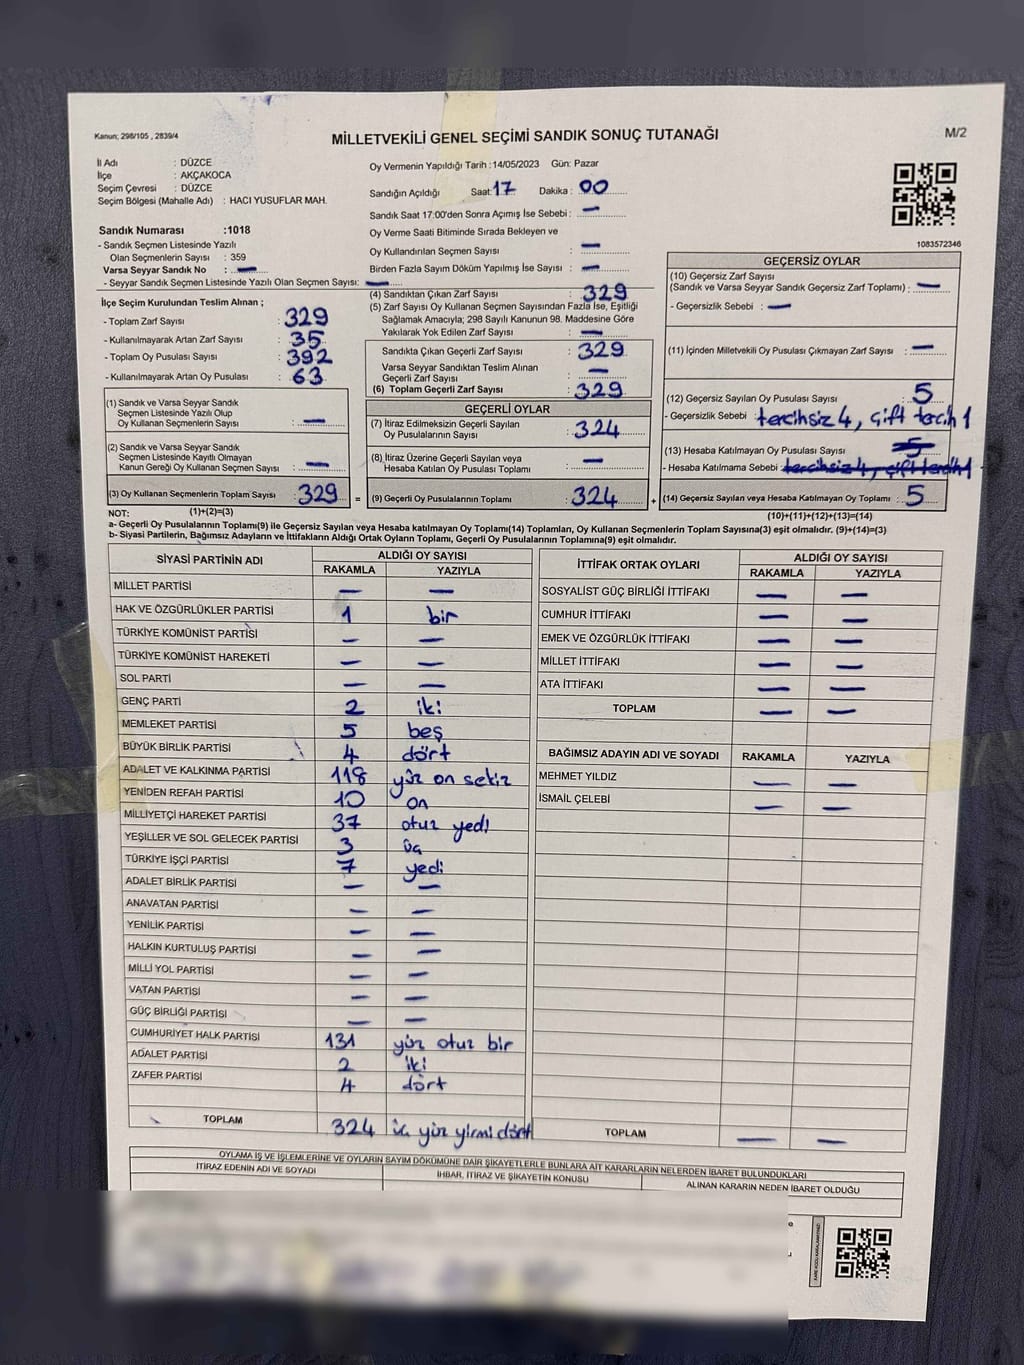 Kanun; 298/105 , 2839/4
MİLLETVEKİLİ GENEL SEÇİMİ SANDIK SONUÇ TUTANAĞI
M/2
İl Adı : DÜZCE
İlçe : AKÇAKOCA
Seçim Çevresi : DÜZCE
Seçim Bölgesi (Mahalle Adı) : HACI YUSUFLAR MAH.
Oy Vermenin Yapıldığı Tarih :14/05/2023 Gün: Pazar
Sandığın Açıldığı Saat:17 Dakika : 00
Sandık Saat 17:00'den Sonra Açımış İse Sebebi : —
Oy Verme Saati Bitiminde Sırada Bekleyen ve
Oy Kullandırılan Seçmen Sayısı : —
Birden Fazla Sayım Döküm Yapılmış İse Sayısı : —
Sandık Numarası :1018
- Sandık Seçmen Listesinde Yazılı
Olan Seçmenlerin Sayısı : 359
Varsa Seyyar Sandık No : —
- Seyyar Sandık Seçmen Listesinde Yazılı Olan Seçmen Sayısı: —
1083572346
İlçe Seçim Kurulundan Teslim Alınan ;
- Toplam Zarf Sayısı : 329
- Kullanılmayarak Artan Zarf Sayısı : 35
- Toplam Oy Pusulası Sayısı : 392
- Kullanılmayarak Artan Oy Pusulası : 63
(1) Sandık ve Varsa Seyyar Sandık
Seçmen Listesinde Yazılı Olup
Oy Kullanan Seçmenlerin Sayısı : —
(2) Sandık ve Varsa Seyyar Sandık
Seçmen Listesinde Kayıtlı Olmayan
Kanun Gereği Oy Kullanan Seçmen Sayısı : —
(3) Oy Kullanan Seçmenlerin Toplam Sayısı : 329 =
(1)+(2)=(3)
(4) Sandıktan Çıkan Zarf Sayısı : 329
(5) Zarf Sayısı Oy Kullanan Seçmen Sayısından Fazla İse, Eşitliği
Sağlamak Amacıyla; 298 Sayılı Kanunun 98. Maddesine Göre
Yakılarak Yok Edilen Zarf Sayısı : —
Sandıkta Çıkan Geçerli Zarf Sayısı : 329
Varsa Seyyar Sandıktan Teslim Alınan
Geçerli Zarf Sayısı : —
(6) Toplam Geçerli Zarf Sayısı : 329
GEÇERLİ OYLAR
(7) İtiraz Edilmeksizin Geçerli Sayılan
Oy Pusulalarının Sayısı : 324
(8) İtiraz Üzerine Geçerli Sayılan veya
Hesaba Katılan Oy Pusulası Toplamı : —
(9) Geçerli Oy Pusulalarının Toplamı : 324 +
GEÇERSİZ OYLAR
(10) Geçersiz Zarf Sayısı
(Sandık ve Varsa Seyyar Sandık Geçersiz Zarf Toplamı) : —
- Geçersizlik Sebebi : —
(11) İçinden Milletvekili Oy Pusulası Çıkmayan Zarf Sayısı : —
(12) Geçersiz Sayılan Oy Pusulası Sayısı : 5
- Geçersizlik Sebebi : tercihsiz 4, çift tercih 1
(13) Hesaba Katılmayan Oy Pusulası Sayısı : 5
- Hesaba Katılmama Sebebi : tercihsiz 4, çift tercih 1
(14) Geçersiz Sayılan veya Hesaba Katılmayan Oy Toplamı : 5
(10)+(11)+(12)+(13)=(14)
NOT:
a- Geçerli Oy Pusulalarının Toplamı(9) ile Geçersiz Sayılan veya Hesaba katılmayan Oy Toplamı(14) Toplamları, Oy Kullanan Seçmenlerin Toplam Sayısına(3) eşit olmalıdır. (9)+(14)=(3)
b- Siyasi Partilerin, Bağımsız Adayların ve İttifakların Aldığı Ortak Oyların Toplamı, Geçerli Oy Pusulalarının Toplamına(9) eşit olmalıdır.
SİYASİ PARTİNİN ADI ALDIĞI OY SAYISI
RAKAMLA YAZIYLA
MİLLET PARTİSİ — —
HAK VE ÖZGÜRLÜKLER PARTİSİ 1 bir
TÜRKİYE KOMÜNİST PARTİSİ — —
TÜRKİYE KOMÜNİST HAREKETİ — —
SOL PARTİ — —
GENÇ PARTİ 2 iki
MEMLEKET PARTİSİ 5 beş
BÜYÜK BİRLİK PARTİSİ 4 dört
ADALET VE KALKINMA PARTİSİ 118 yüz on sekiz
YENİDEN REFAH PARTİSİ 10 on
MİLLİYETÇİ HAREKET PARTİSİ 37 otuz yedi
YEŞİLLER VE SOL GELECEK PARTİSİ 3 üç
TÜRKİYE İŞÇİ PARTİSİ 7 yedi
ADALET BİRLİK PARTİSİ — —
ANAVATAN PARTİSİ — —
YENİLİK PARTİSİ — —
HALKIN KURTULUŞ PARTİSİ — —
MİLLİ YOL PARTİSİ — —
VATAN PARTİSİ — —
GÜÇ BİRLİĞİ PARTİSİ — —
CUMHURİYET HALK PARTİSİ 131 yüz otuz bir
ADALET PARTİSİ 2 iki
ZAFER PARTİSİ 4 dört
TOPLAM 324 üç yüz yirmi dört
İTTİFAK ORTAK OYLARI ALDIĞI OY SAYISI
RAKAMLA YAZIYLA
SOSYALİST GÜÇ BİRLİĞİ İTTİFAKI — —
CUMHUR İTTİFAKI — —
EMEK VE ÖZGÜRLÜK İTTİFAKI — —
MİLLET İTTİFAKI — —
ATA İTTİFAKI — —
TOPLAM — —
BAĞIMSIZ ADAYIN ADI VE SOYADI RAKAMLA YAZIYLA
MEHMET YILDIZ — —
İSMAİL ÇELEBİ — —
TOPLAM — —
OYLAMA İŞ VE İŞLEMLERİNE VE OYLARIN SAYIM DÖKÜMÜNE DAİR ŞİKAYETLERLE BUNLARA AİT KARARLARIN NELERDEN İBARET BULUNDUKLARI
İTİRAZ EDENİN ADI VE SOYADI İHBAR, İTİRAZ VE ŞİKAYETİN KONUSU ALINAN KARARIN NEDEN İBARET OLDUĞU